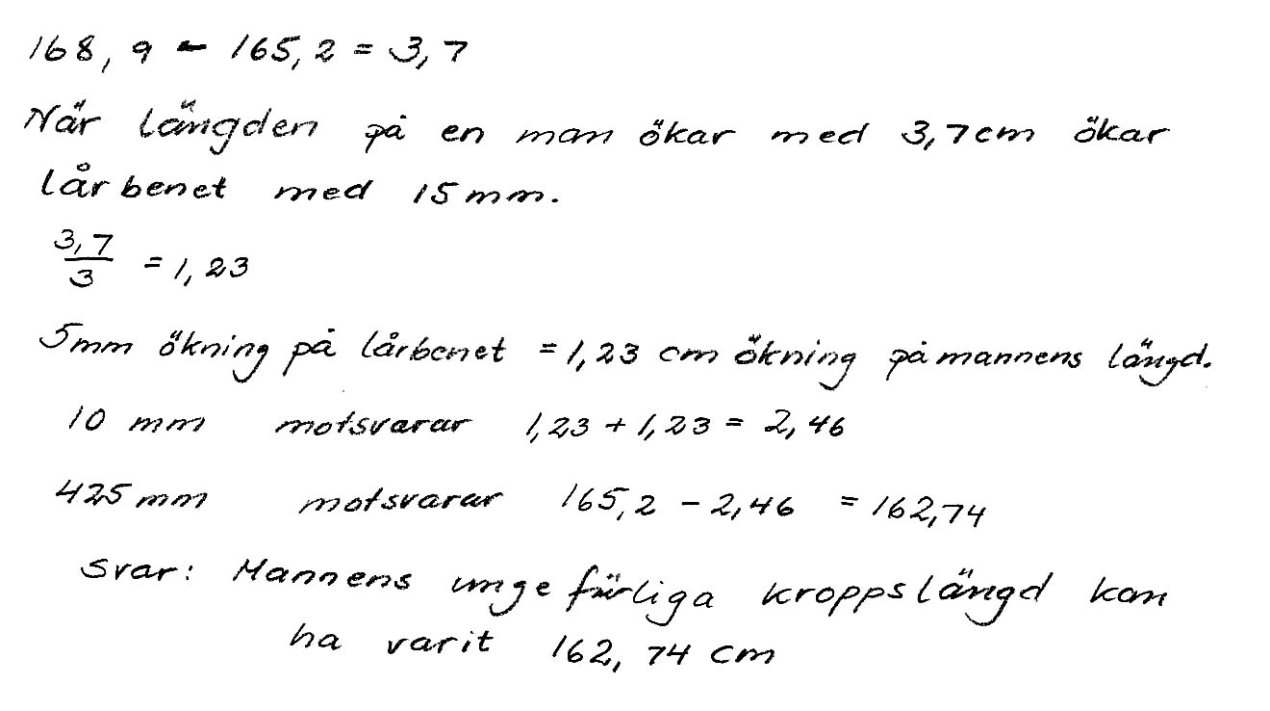 168,9 - 165,2 = 3,7
När längden på en man ökar med 3,7cm ökar
lårbenet med 15mm.
3,7/3 = 1,23
5mm ökning på lårbenet = 1,23 cm ökning på mannens längd.
10 mm motsvarar 1,23 + 1,23 = 2,46
425mm motsvarar 165,2 - 2,46 = 162,74
Svar: Mannens ungefärliga kroppslängd kan
ha varit 162,74 cm